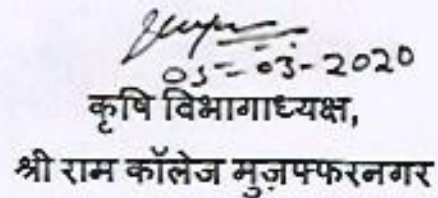 05-03-2020
कृषि विभागाध्यक्ष,
श्री राम कॉलेज मुज़फ्फरनगर